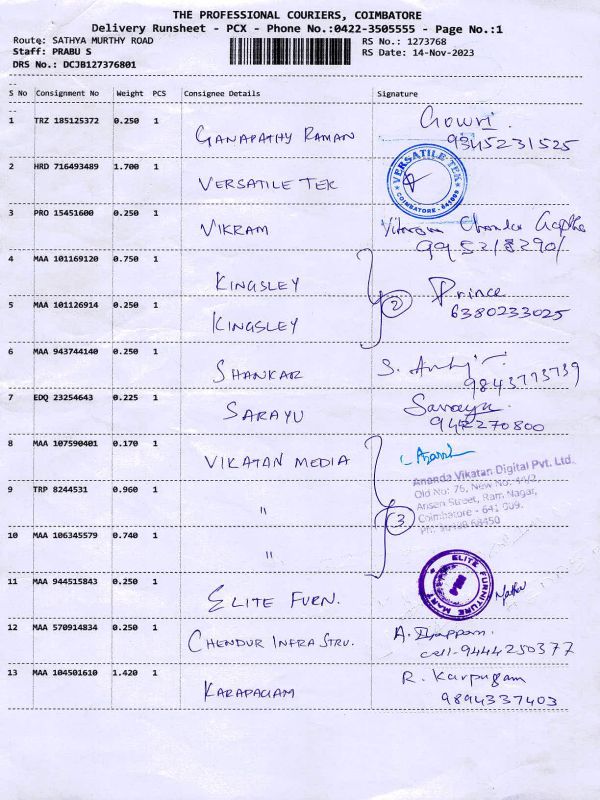 THE PROFESSIONAL COURIERS, COIMBATORE
Delivery Runsheet - PCX - Phone No.:0422-3505555 - Page No.:1
Route: SATHYA MURTHY ROAD
RS No.: 1273768
Staff: PRABU S
RS Date: 14-Nov-2023
DRS No.: DCJB127376801
S No Consignment No Weight PCS Consignee Details Signature
1 TRZ 185125372 0.250 1 GANAPATHY RAMAN Gowri.
9345231525
2 HRD 716493489 1.700 1 VERSATILE TEK
VERSATILE-TEK
COIMBATORE - 641009
3 PRO 15451600 0.250 1 VIKRAM Chander
4 MAA 101169120 0.750 1 KINGSLEY Prince
2
5 MAA 101126914 0.250 1 KINGSLEY 6380233025
6 MAA 943744140 0.250 1 SHANKAR S.
9843773739
7 EDQ 23254643 0.225 1 SARAYU Saraya
8 MAA 107590401 0.170 1 VIKATAN MEDIA
Ananda Vikatan Digital Pvt. Ltd.
9 TRP 8244531 0.960 1 "
Old No: 76, New No:
Ansari Street, Ram Nagar,
3
Coimbatore - 641 009.
10 MAA 106345579 0.740 1 "
11 MAA 944515843 0.250 1 ELITE FURN.
ELITE FURNITURE MART
12 MAA 570914834 0.250 1 CHENDUR INFRA STRU. A.
cell-9444250377
13 MAA 104501610 1.420 1 KARAPAGAM R. Karpugam
9894337403